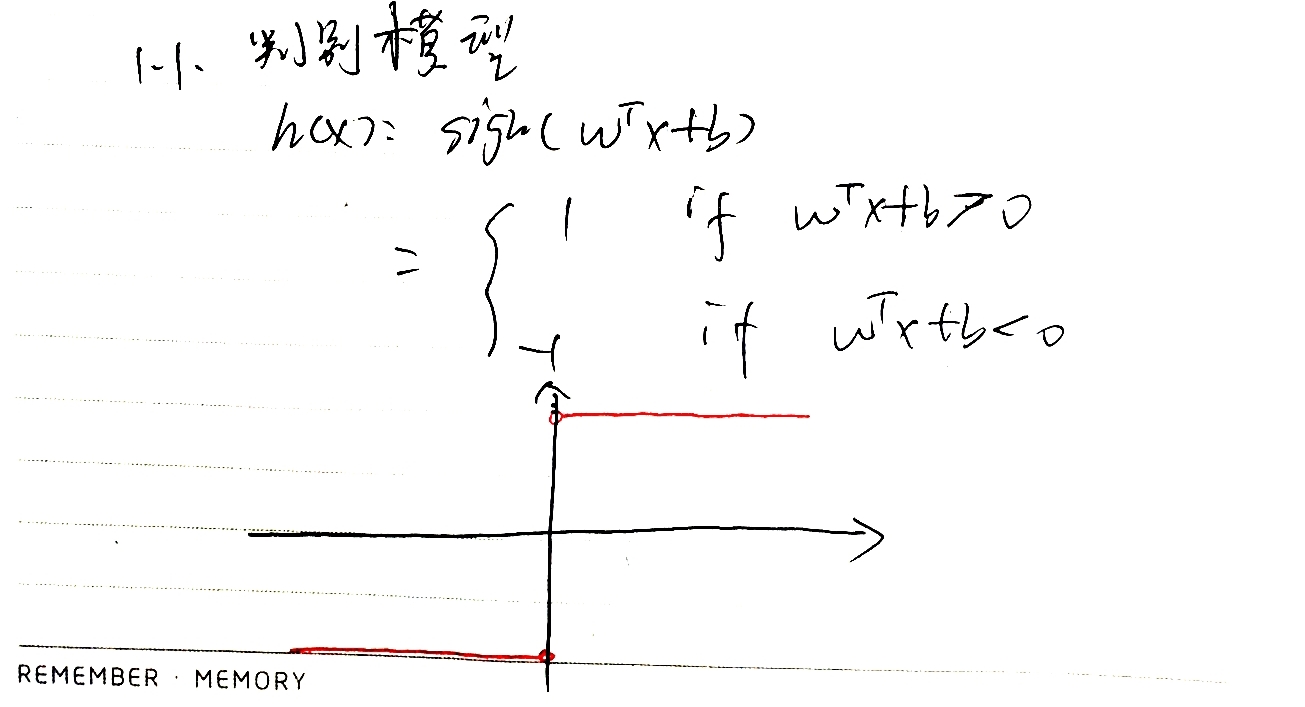 1-1. 判别模型
h(x)= sign(wᵀx+b)
= { 1 if wᵀx+b>0
-1 if wᵀx+b<0
REMEMBER · MEMORY